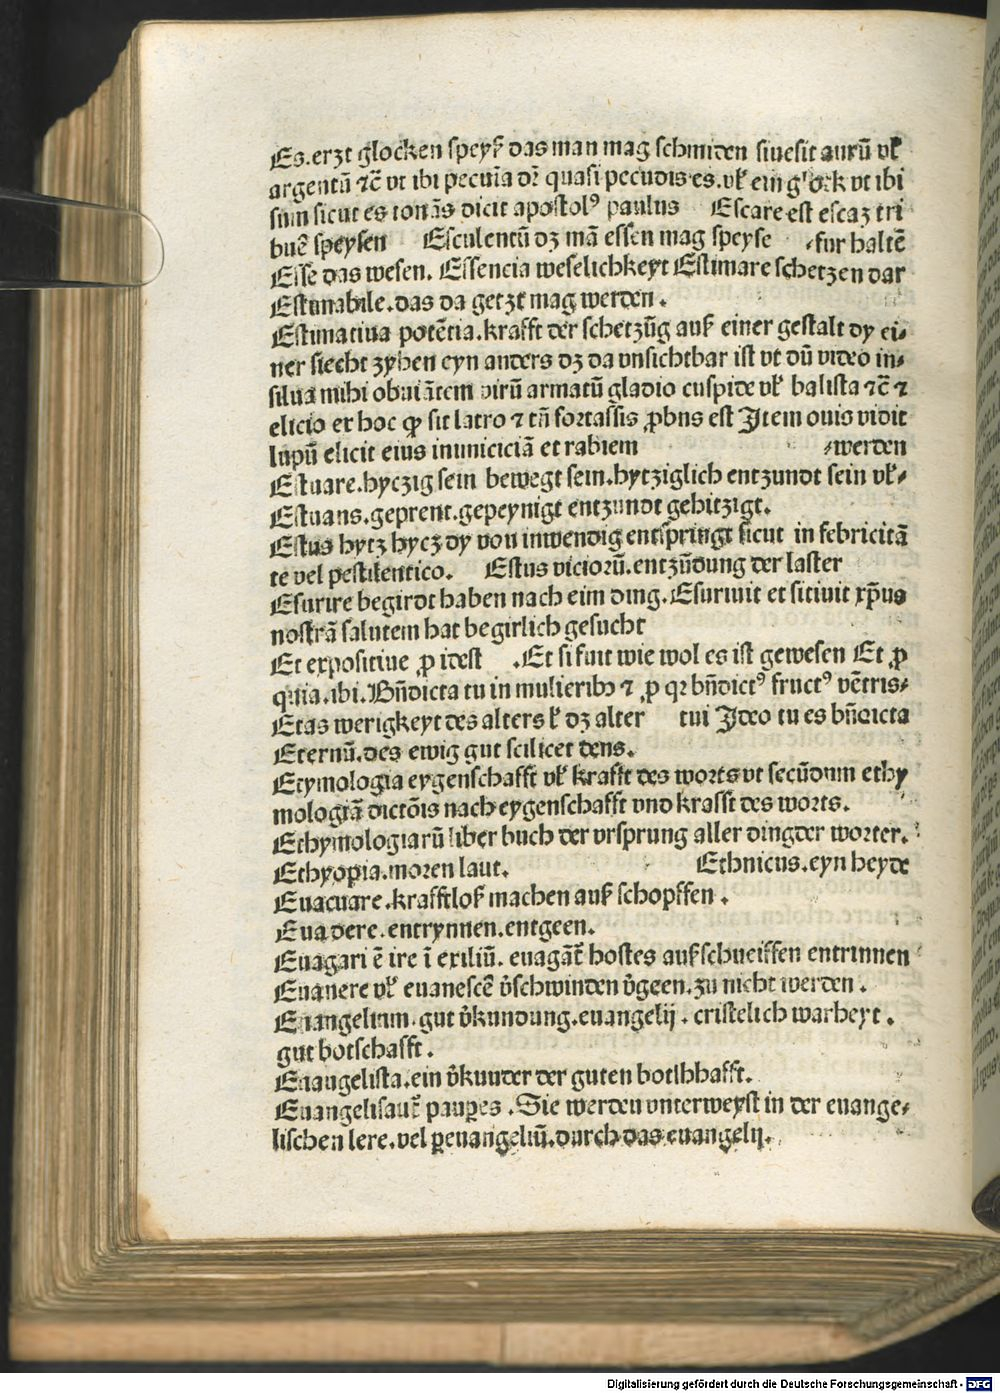 Es.erzt glocken speyß das man mag schmiden siuesit aurū vł
argentū ⁊c̄ vt ibi pecuīa dr̄ quasi pecudis es. vł ein gˡoꝛk vt ibi
sum sicut es tonās dicit apostolꝰ paulus Escare est escaꝫ tri
buē speysen Esculentū dꝫ mā essen mag speyse ⸗fur haltē
Esse das wesen. Essencia weselichkeyt Estimare schetzen dar
Estimabile.das da getzt mag werden.
Estimatiua potētia.krafft der schetzūg auß einer gestalt dy ei⸗
ner siecht zyhen eyn anders dꝫ da vnsichtbar ist vt dū video in⸗
silua mihi obuiātem virū armatū gladio cuspide vł balista ⁊c̄ ⁊
elicio ex hoc ꝙ sit latro ⁊ tn̄ fortassis ꝓbus est Item ouis vidit
lupū elicit eius inimiciciā et rabiem ⸗werden
Estuare.hyczig sein bewegt sein.hytziglich entzundt sein vł⸗
Estuans.geprent.gepeynigt entzundt gehitzigt.
Estus hytz hycz dy von inwendig entspringt sicut in febricitā
te vel pestilentico. Estus viciorū.entzūdung der laster
Esurire begirdt haben nach eim ding. Esuriuit et sitiuit xp̄us
nostrā salutem hat begirlich gesucht
Et expositiue ꝓ idest .Et si fuit wie wol es ist gewesen Et ꝓ
quia.ibi.Bn̄dicta tu in mulieribꝫ ⁊ ꝓ qꝛ bn̄dictꝰ fructꝰ vētris⸗
Etas werigkeyt des alters ł dꝫ alter tui Ideo tu es bn̄dicta
Eternū.des ewig gut scilicet deus.
Etymologia eygenschafft vł krafft des worts vt secūdum ethy
mologiā dictōis nach eygenschafft vnd krafft des worts.
Ethymologiarū liber buch der vrsprung aller dingder worter.
Ethyopia.moren laut. Ethnicus.eyn heyde
Euacuare.krafftloß machen auß schopffen.
Euadere.entrynnen.entgeen.
Euagari ē ire ī exiliū. euagāt̄ hostes außschueiffen entrinnen
Euanere vł euanescē v̓schwinden v̓geen.zu nicht werden.
Euangelium.gut v̓kundung.euangelij.cristelich warheyt.
gut botschafft.
Euangelista.ein v̓kunder der guten bothhafft.
Euangelisant̄ pauꝑes.Sie werden vnterweyst in der euange⸗
lischen lere.vel ꝑeuangeliū.durch das euangelij.
Digitalisierung gefördert durch die Deutsche Forschungsgemeinschaft - DFG